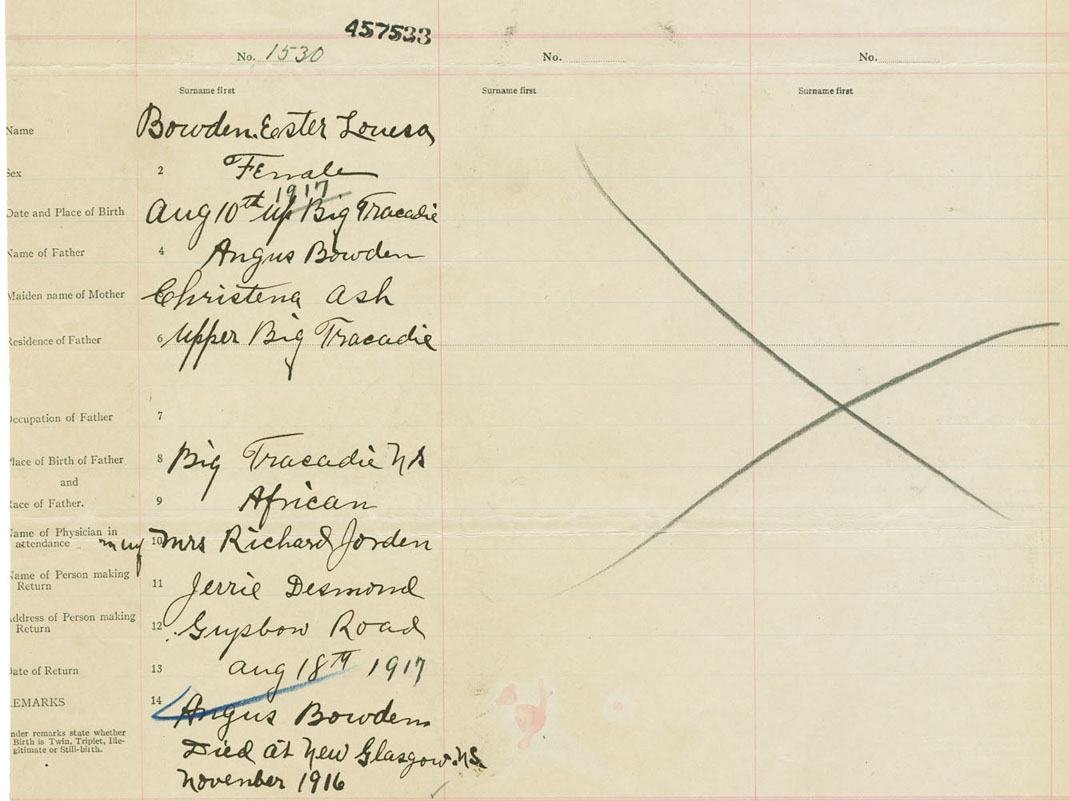 457533
No. 1530 No. No.
Surname first Surname first Surname first
Name Bowden Ester Louesa
Sex 2 Female
1917
Date and Place of Birth Aug 10th Up Big Tracadie
Name of Father 4 Angus Bowden
Maiden name of Mother Christena Ash
Residence of Father 6 Upper Big Tracadie
Occupation of Father 7
Place of Birth of Father 8 Big Tracadie NS
and
Race of Father. 9 African
Name of Physician in
attendance 10 Mrs Richard Jorden
Name of Person making
Return 11 Jerrie Desmond
Address of Person making
Return 12 Guysbow Road
Date of Return 13 Aug 18th 1917
REMARKS 14 Angus Bowden
Under remarks state whether
Birth is Twin, Triplet, Ille-
gitimate or Still-birth.
Died at New Glasgow. NS.
November 1916